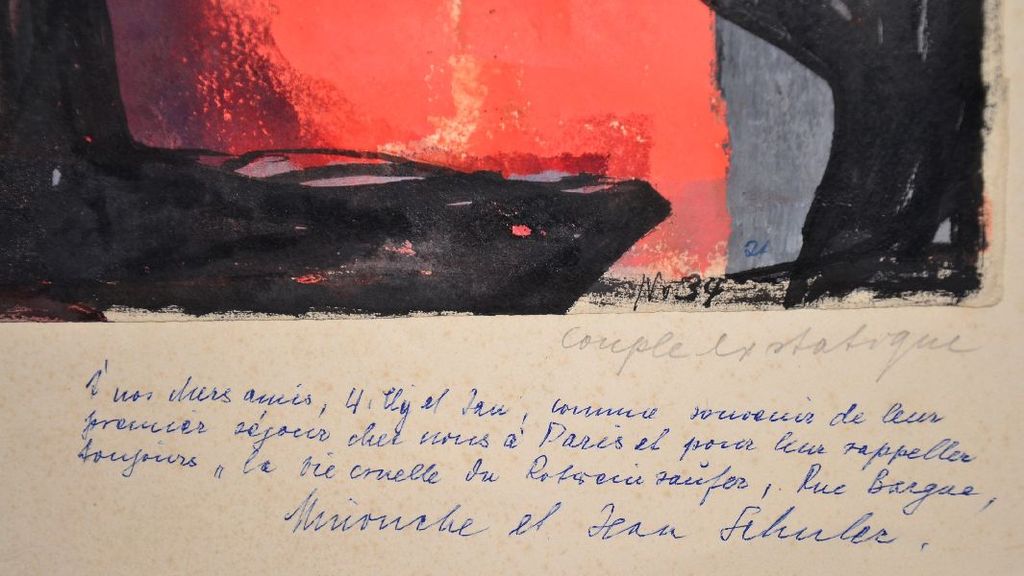 Nr 34
couple extatique
À nos chers amis, et Jan, comme souvenir de leur
premier séjour chez nous à Paris et pour leur rappeller
toujours „ la vie cruelle du Rotweinsäufer, Rue Bargue,
Minouche et Jean Schuler.